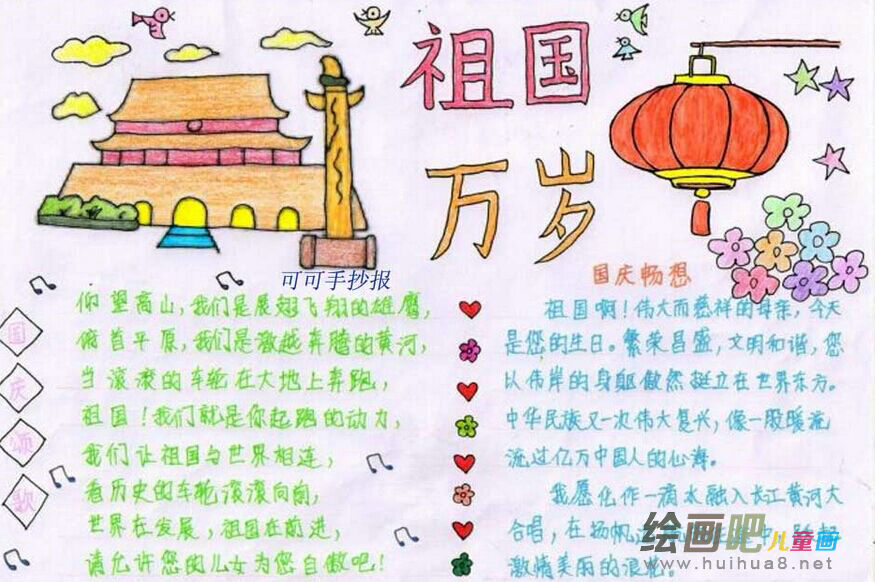 祖国
万岁
可可手抄报
国庆颂歌
仰望高山，我们是展翅飞翔的雄鹰，
俯首平原，我们是激越奔腾的黄河，
当滚滚的车轮在大地上奔跑，
祖国！我们就是你起跑的动力，
我们让祖国与世界相连，
看历史的车轮滚滚向前，
世界在发展，祖国在前进，
请允许您的儿女为您自傲吧！
国庆畅想
祖国啊！伟大而慈祥的母亲，今天
是您的生日。繁荣昌盛，文明和谐，您
以伟岸的身躯傲然挺立在世界东方。
中华民族又一次伟大复兴，像一股暖流
流过亿万中国人的心海。
我愿化作一滴水融入长江黄河大
合唱，在扬帆
激情美丽的浪
绘画吧儿童画
www.huihua8.net